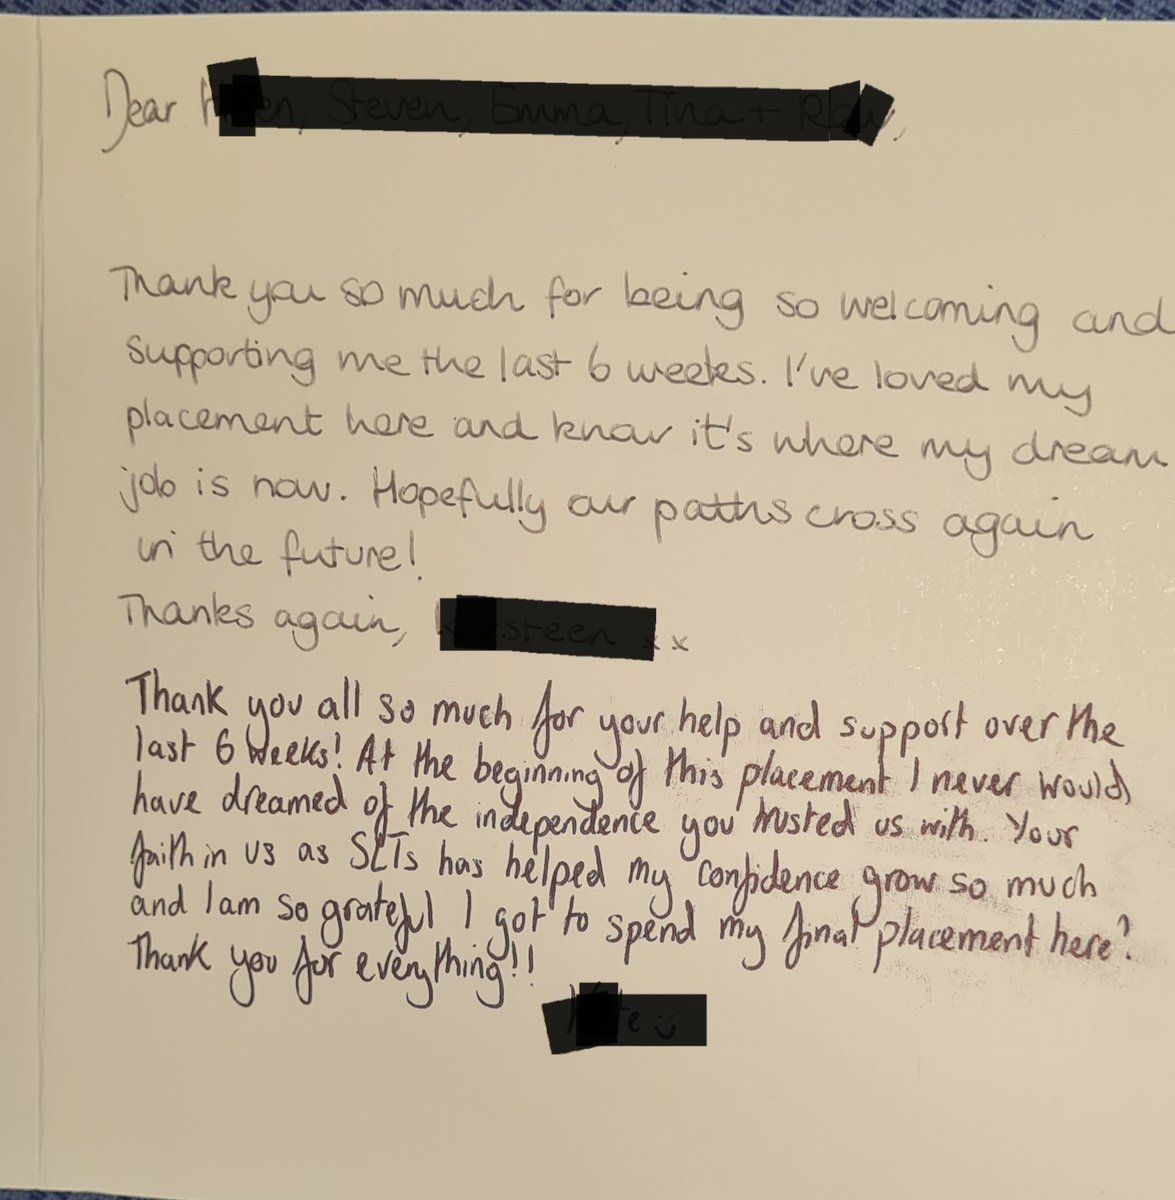 Dear
Thank you so much for being so welcoming and
supporting me the last 6 weeks. I've loved my
placement here and know it's where my dream
job is now. Hopefully our paths cross again
in the future!
Thanks again, x x
Thank you all so much for your help and support over the
last 6 weeks! At the beginning of this placement I never would
have dreamed of the independence you trusted us with. Your
faith in us as SLTs has helped my confidence grow so much
and I am so grateful I got to spend my final placement here!
Thank you for everything!!